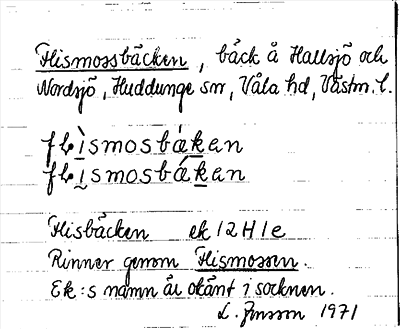 Flismossbäcken, bäck å Hallsjö och
Nordsjö, Huddunge sn, Våla hd, Västm. l.
flìsmosbákan
flìsmosbákan
Flisbäcken ek 12 H 1 e
Rinner genom Flismossen.
Ek:s namn är okänt i socknen.
L. Jonsson 1971